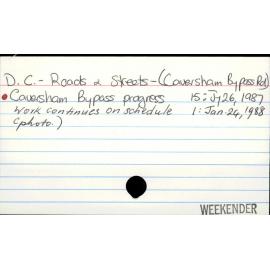 D.C. - Roads & Streets - (Caversham Bypass Rd)
Caversham Bypass progress 15: Jy 26, 1987
Work continues on schedule 1: Jan. 24, 1988
(photo.)
WEEKENDER